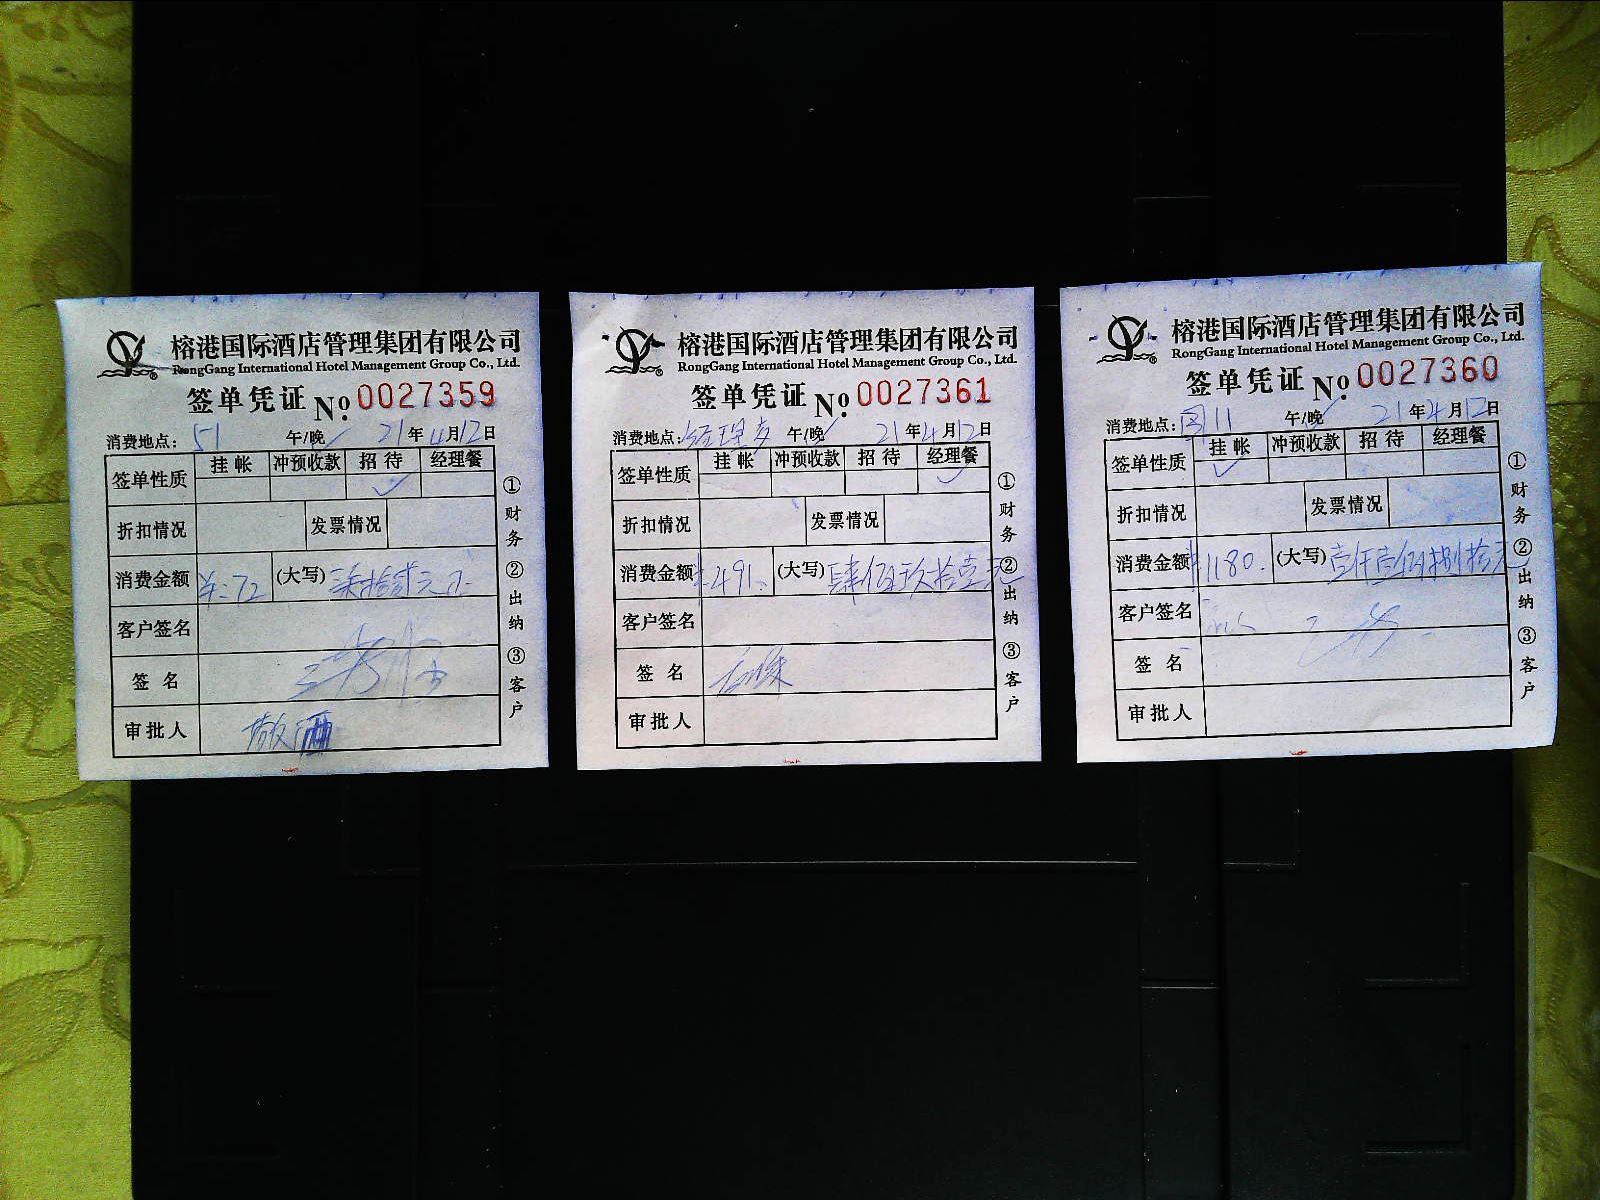 榕港国际酒店管理集团有限公司
RongGang International Hotel Management Group Co., Ltd.
签单凭证 No. 0027359
消费地点: 51 午/晚 21年4月12日
签单性质 挂帐 冲预收款 招待 经理餐
折扣情况 发票情况
消费金额 ¥:72 (大写) 柒拾贰元
客户签名
签名
审批人 敬酒
①财务 ②出纳 ③客户
榕港国际酒店管理集团有限公司
RongGang International Hotel Management Group Co., Ltd.
签单凭证 No. 0027361
消费地点: 经理 午/晚 21年4月12日
签单性质 挂帐 冲预收款 招待 经理餐
折扣情况 发票情况
消费金额 ¥491. (大写) 肆佰玖拾壹元
客户签名
签名
审批人
①财务 ②出纳 ③客户
榕港国际酒店管理集团有限公司
RongGang International Hotel Management Group Co., Ltd.
签单凭证 No. 0027360
消费地点: 11 午/晚 21年4月12日
签单性质 挂帐 冲预收款 招待 经理餐
折扣情况 发票情况
消费金额 ¥1180. (大写) 壹仟壹佰捌拾元
客户签名
签名
审批人
①财务 ②出纳 ③客户